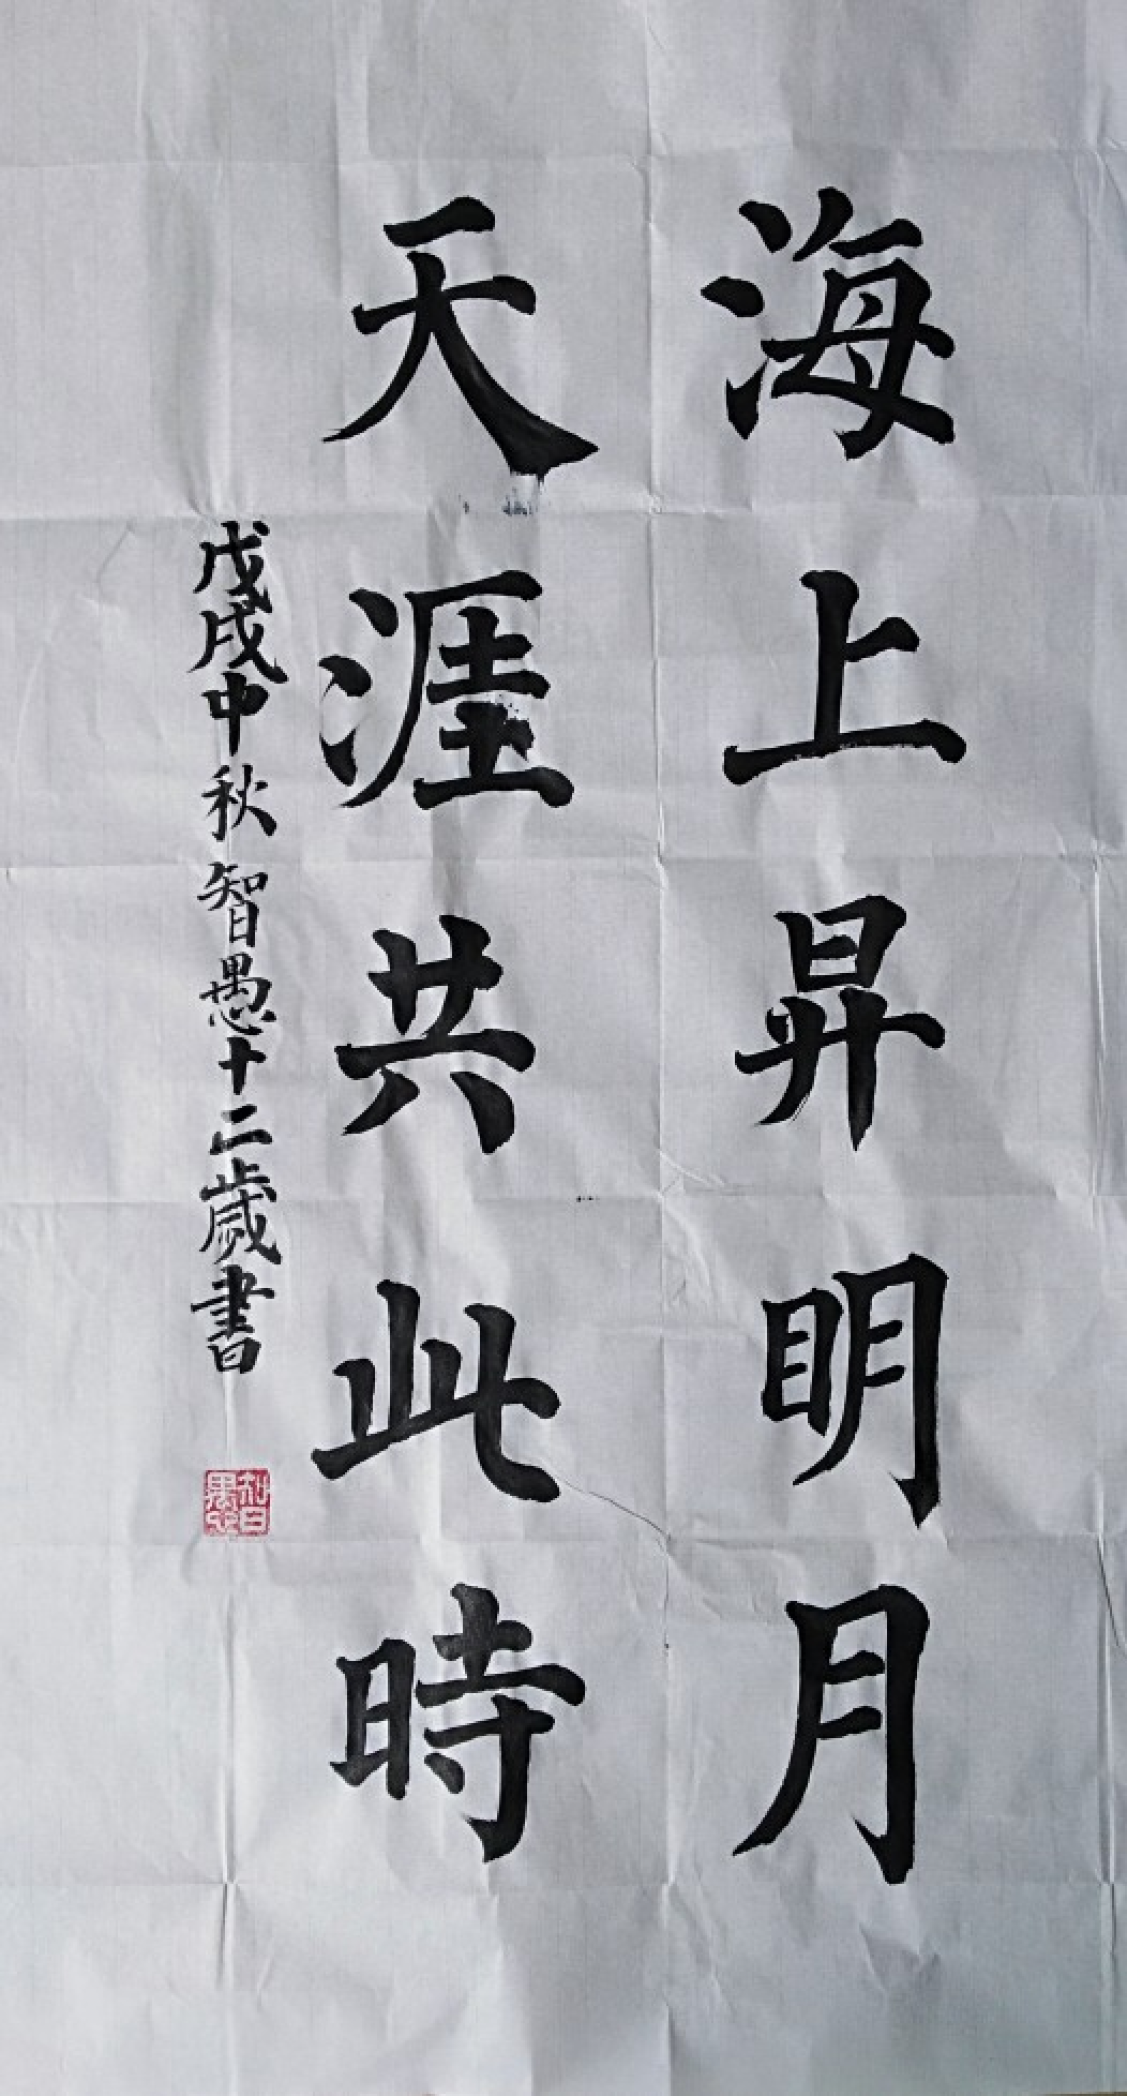 海上昇明月
天涯共此時
戊戌中秋智愚十二歲書
智愚